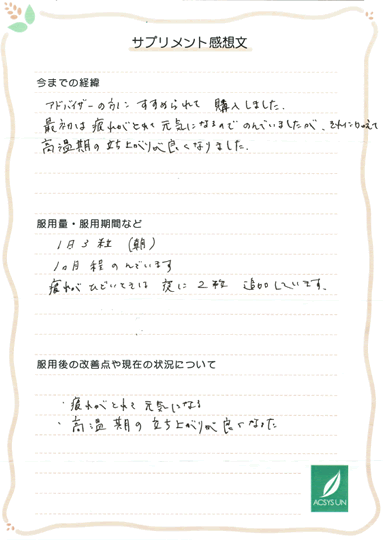 サプリメント感想文
今までの経緯
アドバイザーの方に すすめられて 購入しました.
最初は 疲れがとれて 元気になるので のんでいましたが、それにくわえて
高温期の立ち上がりが良くなりました.
服用量・服用期間など
1日3粒 (朝)
1ヵ月 程 のんでいます
疲れが ひどいときは 夜に 2粒 追加しています.
服用後の改善点や現在の状況について
・疲れがとれて 元気になる
・高温期の 立ち上がりが 良くなった
ACSYSUN